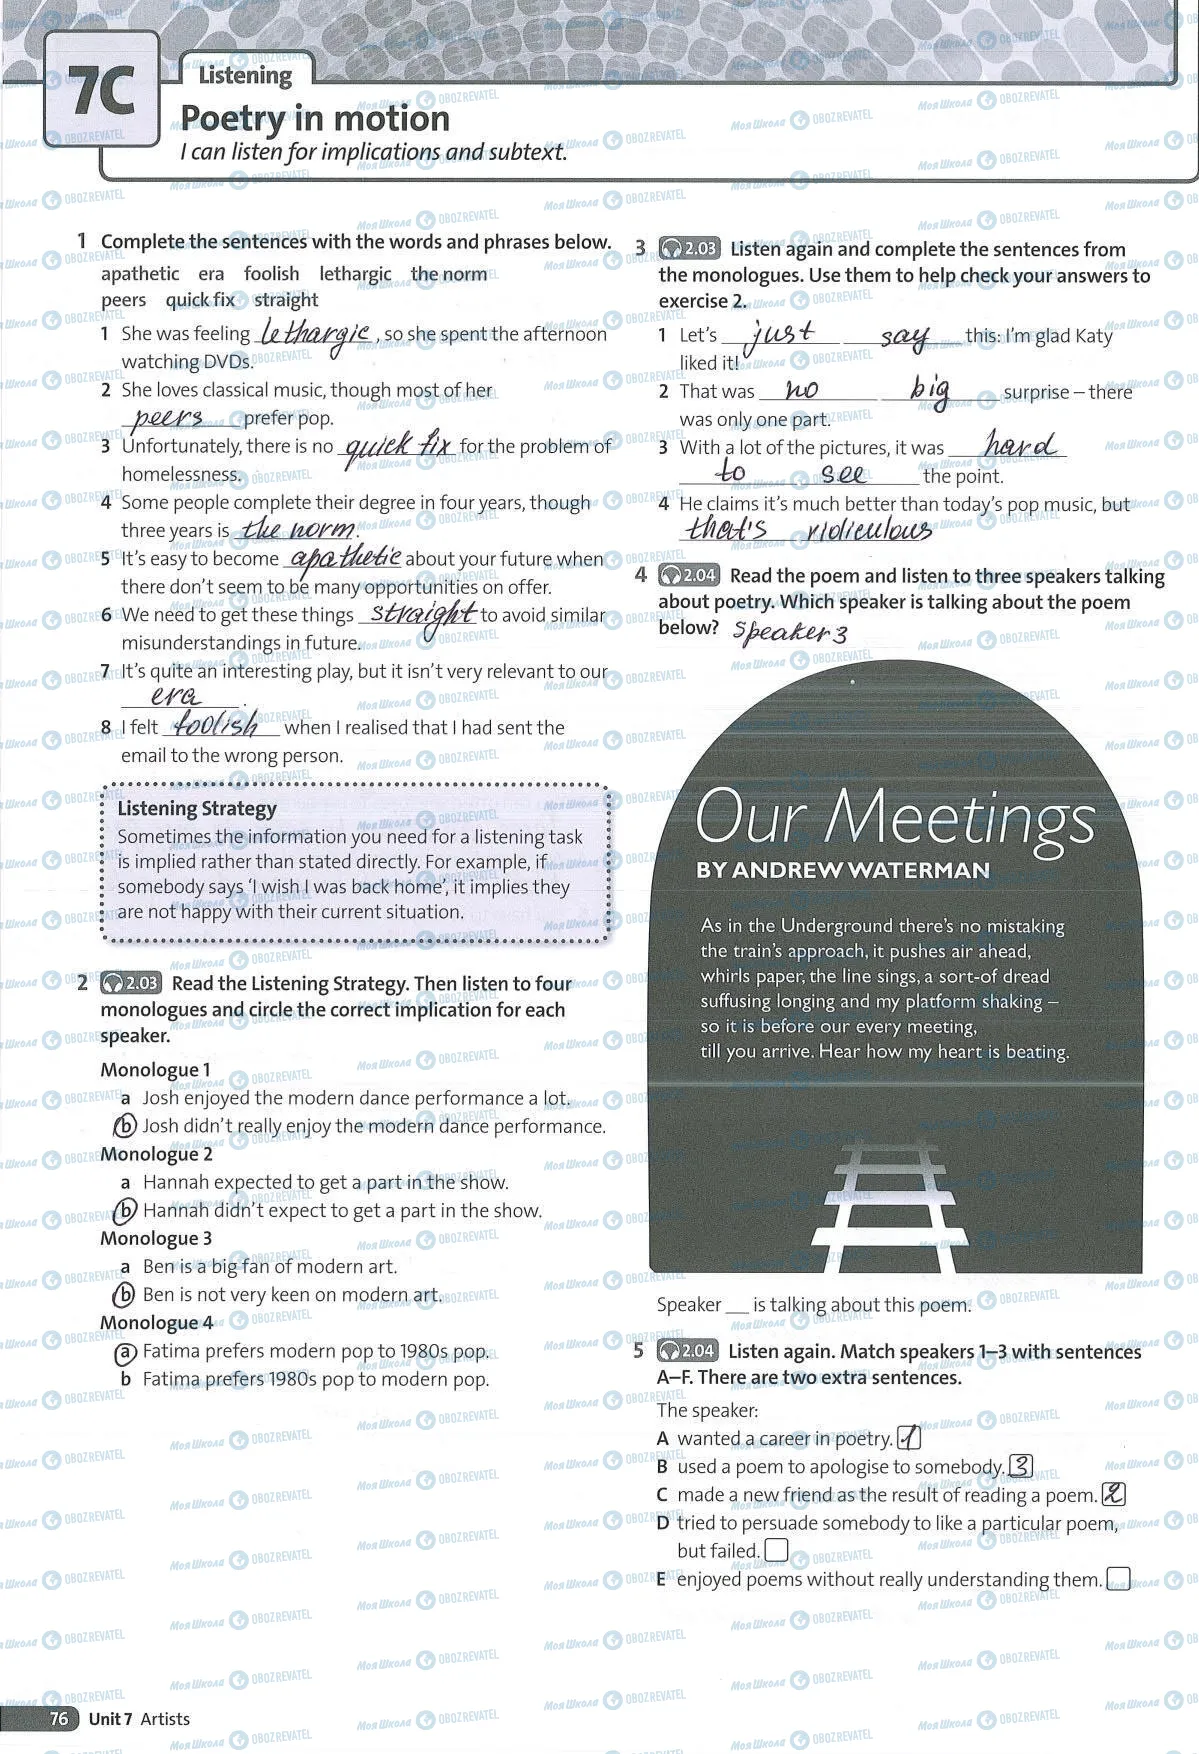 7C
Listening
Poetry in motion
I can listen for implications and subtext.
1 Complete the sentences with the words and phrases below.
apathetic era foolish lethargic the norm
peers quick fix straight
1 She was feeling lethargic, so she spent the afternoon
watching DVDs.
2 She loves classical music, though most of her
peers prefer pop.
3 Unfortunately, there is no quick fix for the problem of
homelessness.
4 Some people complete their degree in four years, though
three years is the norm.
5 It's easy to become apathetic about your future when
there don't seem to be many opportunities on offer.
6 We need to get these things straight to avoid similar
misunderstandings in future.
7 It's quite an interesting play, but it isn't very relevant to our
era.
8 I felt foolish when I realised that I had sent the
email to the wrong person.
Listening Strategy
Sometimes the information you need for a listening task
is implied rather than stated directly. For example, if
somebody says 'I wish I was back home', it implies they
are not happy with their current situation.
2 2.03 Read the Listening Strategy. Then listen to four
monologues and circle the correct implication for each
speaker.
Monologue 1
a Josh enjoyed the modern dance performance a lot.
b Josh didn't really enjoy the modern dance performance.
Monologue 2
a Hannah expected to get a part in the show.
b Hannah didn't expect to get a part in the show.
Monologue 3
a Ben is a big fan of modern art.
b Ben is not very keen on modern art.
Monologue 4
a Fatima prefers modern pop to 1980s pop.
b Fatima prefers 1980s pop to modern pop.
3 2.03 Listen again and complete the sentences from
the monologues. Use them to help check your answers to
exercise 2.
1 Let's just say this: I'm glad Katy
liked it!
2 That was no big surprise – there
was only one part.
3 With a lot of the pictures, it was hard
to see the point.
4 He claims it's much better than today's pop music, but
that's ridiculous
4 2.04 Read the poem and listen to three speakers talking
about poetry. Which speaker is talking about the poem
below? Speaker 3
Our Meetings
BY ANDREW WATERMAN
As in the Underground there's no mistaking
the train's approach, it pushes air ahead,
whirls paper, the line sings, a sort-of dread
suffusing longing and my platform shaking –
so it is before our every meeting,
till you arrive. Hear how my heart is beating.
Speaker __ is talking about this poem.
5 2.04 Listen again. Match speakers 1–3 with sentences
A–F. There are two extra sentences.
The speaker:
A wanted a career in poetry. 1
B used a poem to apologise to somebody. 3
C made a new friend as the result of reading a poem. 2
D tried to persuade somebody to like a particular poem,
but failed.
E enjoyed poems without really understanding them.
76 Unit 7 Artists
Моя Школа OBOZREVATEL